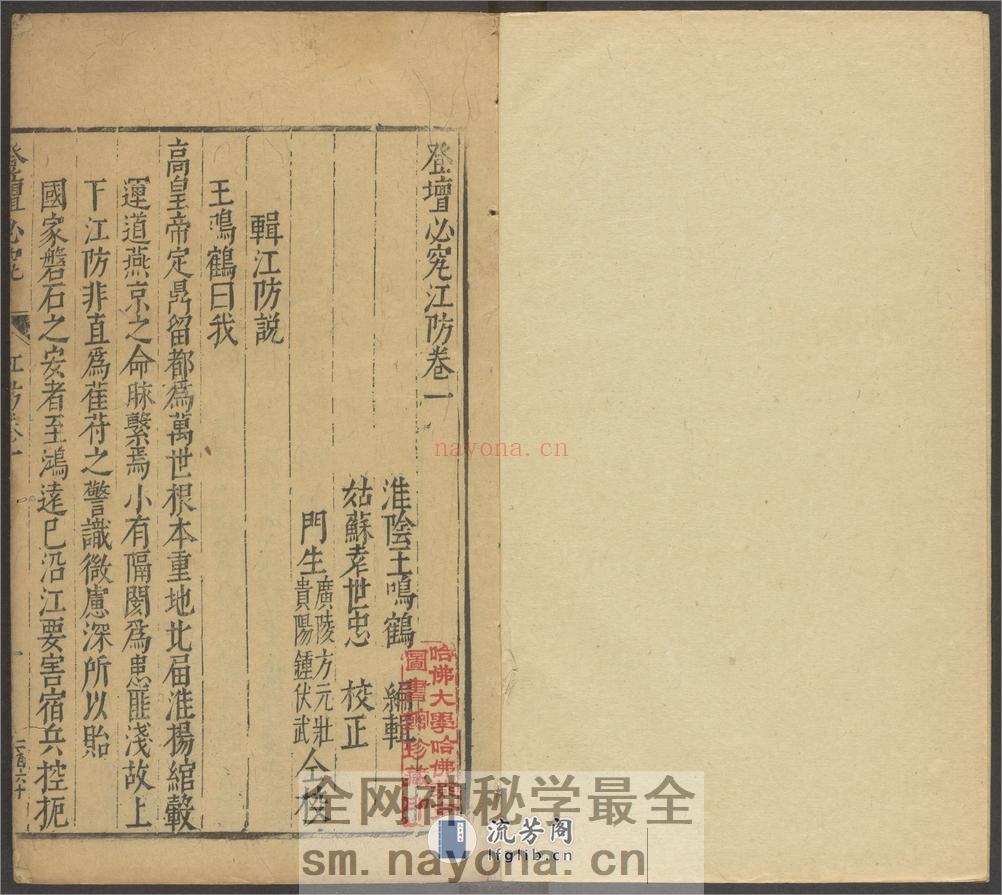 登壇必究江防卷一
淮陰王鳴鶴 編輯
姑蘇袁世忠 校正
門生廣陵方元壯
貴陽鍾伏武
仝校
輯江防説
王鳴鶴曰我
高皇帝定鼎留都為萬世根本重地北届淮揚綰轂
運道燕京之命脉繫焉小有隔閡為患匪淺故上
下江防非直為萑苻之警識微慮深所以貽
國家磐石之安者至鴻遠已沿江要害宿兵控扼
登壇必究
江防卷一
哈佛大學哈佛
圖書館珍藏印
nayona.cn
全网神秘学最全
流芳阁
lfglib.cn
sm.nayona.cn